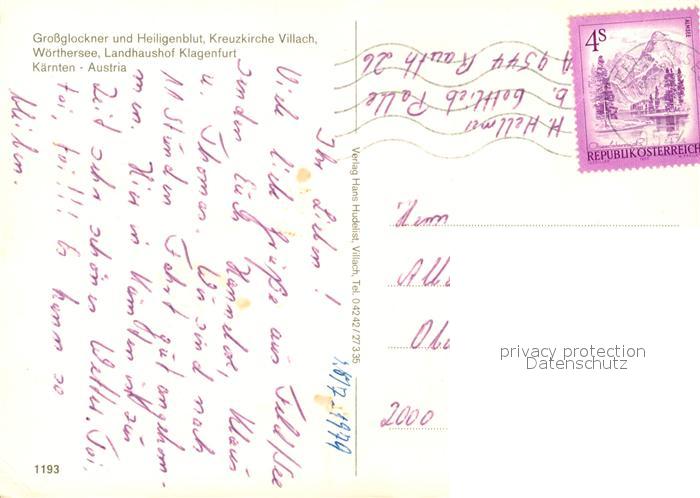 Großglockner und Heiligenblut, Kreuzkirche Villach,
Wörthersee, Landhaushof Klagenfurt
Kärnten - Austria
Ihr Lieben!
Viele liebe Grüße aus Feld/See
senden Euch Hannelore, Klaus
u. Thomas. Wir sind nach
11 Stunden Fahrt gut angekom-
men. Hier in Kärnten ist zur
Zeit sehr schönes Wetter. Toi,
toi, toi!!! Es kann so
bleiben.
1193
Verlag Hans Hudelist, Villach, Tel. 04242/27335
H. Hellma
b. Gottlieb Palle
A 9544 Rauth 26
4S
ALMSEE
REPUBLIK ÖSTERREICH
2000
privacy protection
Datenschutz